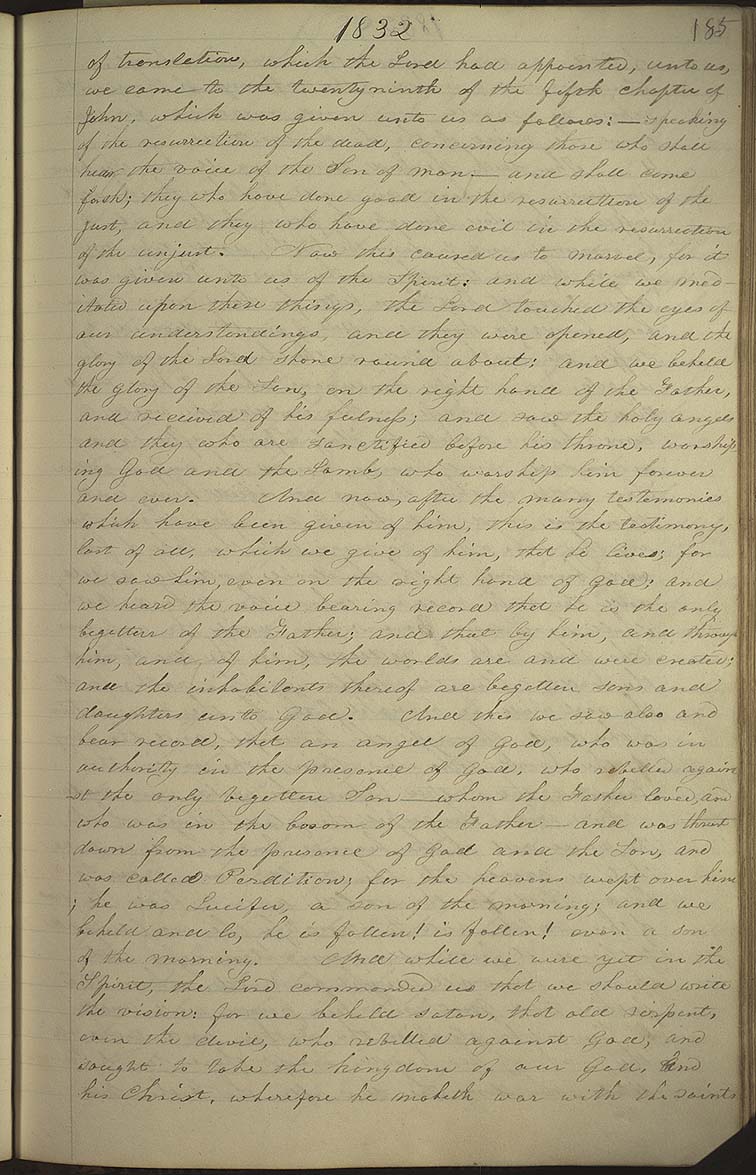 1832
185
of translation, which the Lord had appointed, unto us,
we came to the twentyninth of the fifth chapter of
John, which was given unto us as follows:— speaking
of the resurrection of the dead, concerning those who shall
hear the voice of the Son of man— and shall come
forth; they who have done good in the resurrection of the
just, and they who have done evil in the resurrection
of the unjust. Now this caused us to marvel, for it
was given unto us of the Spirit: and while we med-
itated upon these things, the Lord touched the eyes of
our understandings, and they were opened, and the
glory of the Lord shone round about; and we beheld
the glory of the Son, on the right hand of the Father,
and received of his fulness; and saw the holy angels
and they who are sanctified before his throne, worship
ing God and the Lamb, who worship him forever
and ever. And now, after the many testimonies
which have been given of him, this is the testimony,
last of all, which we give of him, that he lives; for
we saw him, even on the right hand of God; and
we heard the voice bearing record that he is the only
begotten of the Father; and that by him, and through
him, and of him, the worlds are and were created;
and the inhabitants thereof are begotten sons and
daughters unto God. And this we saw also and
bear record, that an angel of God, who was in
authority in the presence of God, who rebelled again
st the only begotten Son— whom the Father loved, and
who was in the bosom of the Father— and was thrust
down from the presence of God and the Son, and
was called Perdition; for the heavens wept over him
; he was Lucifer, a son of the morning; and we
beheld and lo, he is fallen! is fallen! even a son
of the morning. And while we were yet in the
Spirit, the Lord commanded us that we should write
the vision: for we beheld satan, that old serpent,
even the devil, who rebelled against God, and
sought to take the kingdom of our God, and
his Christ, wherefore he maketh war with the saints